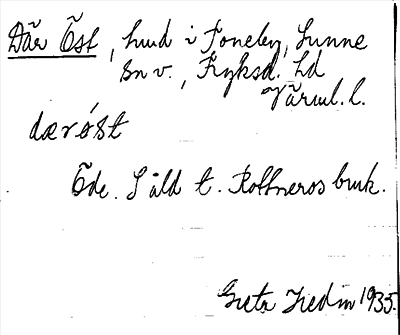 Där Öst, hmd i Toneby, Sunne
sn v., Fryksd. hd
Värml. l.
dærø´st
Öde. Såld t. Rottneros bruk.
Greta Hedin 1935.